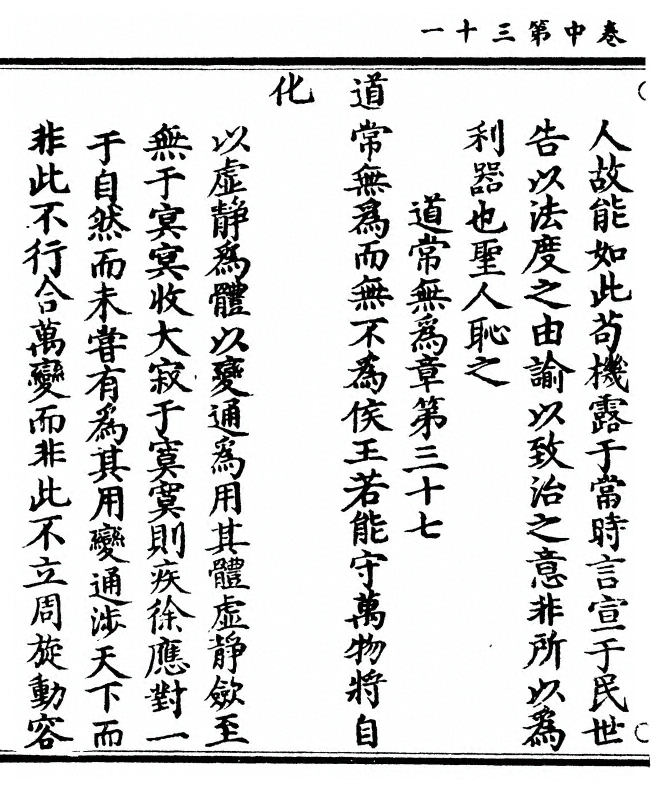 卷中第三十一
人故能如此苟機露于當時言宣于民世
告以法度之由諭以致治之意非所以為
利器也聖人恥之
道常無為章第三十七
道常無為而無不為侯王若能守萬物將自
化
以虛靜為體以變通為用其體虛靜斂至
無于冥冥收大寂于寞寞則疾徐應對一
于自然而未嘗有為其用變通涉天下而
非此不行合萬變而非此不立周旋動容